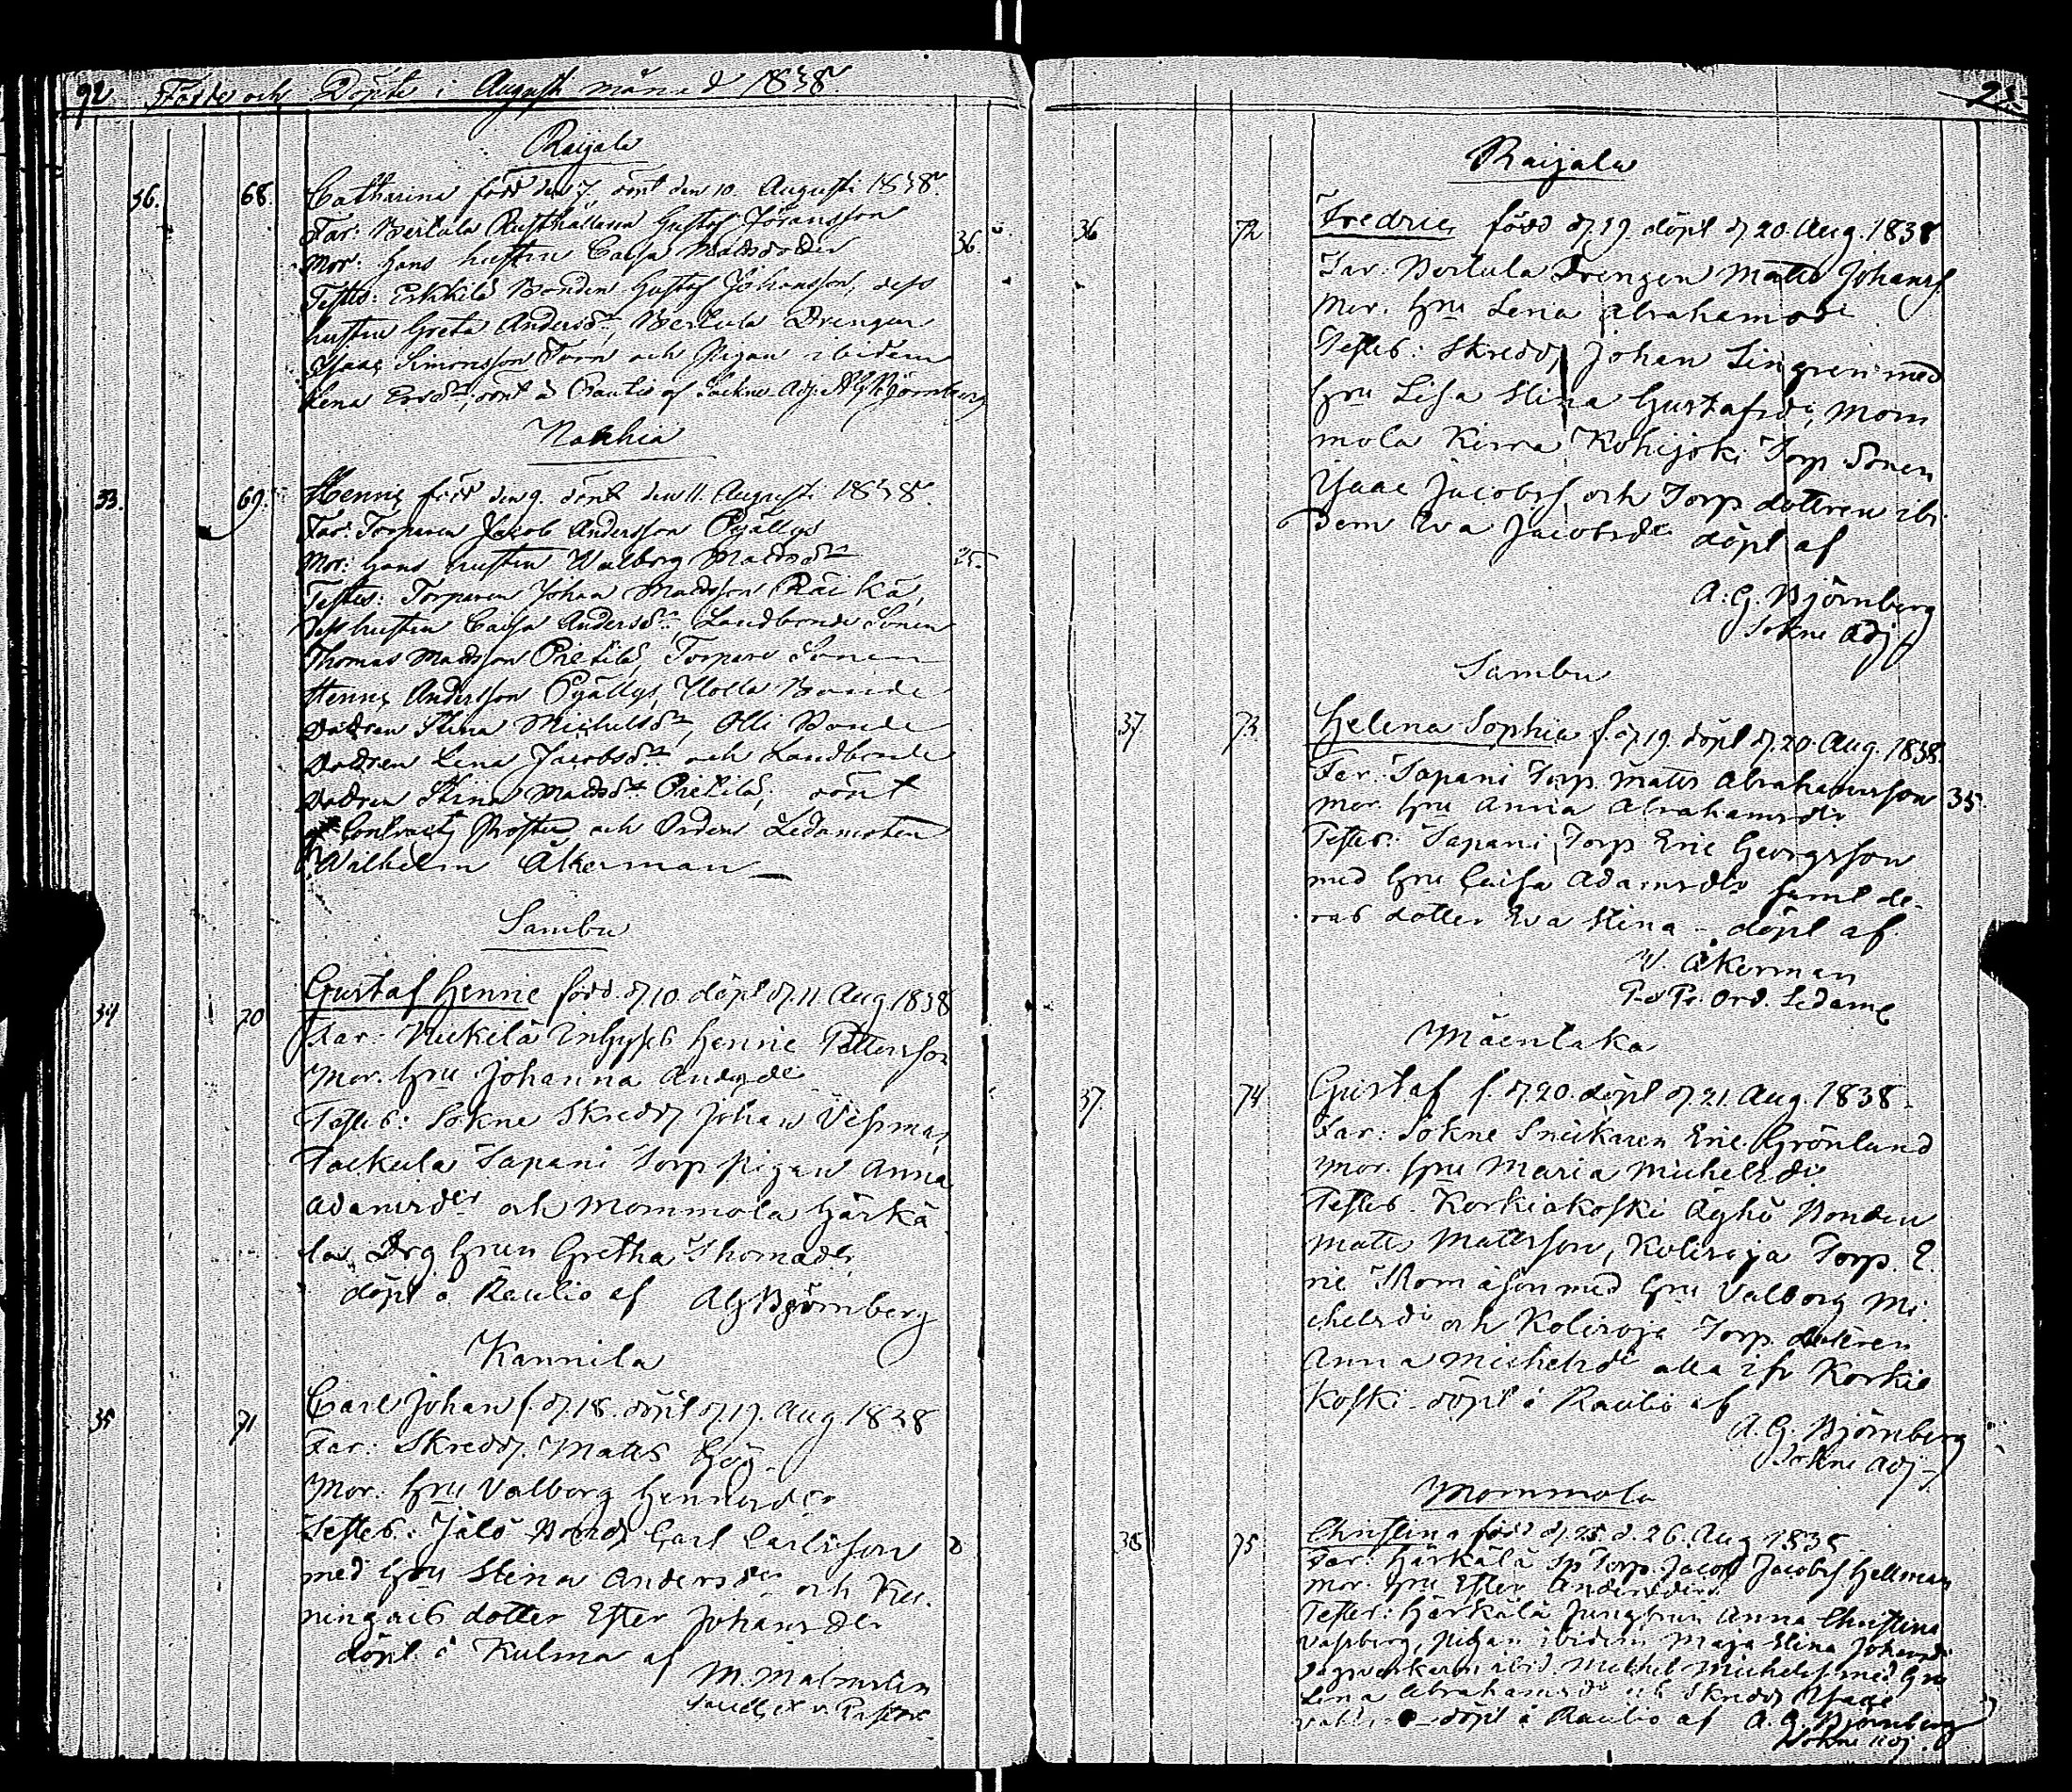 92 Födde och Döpte i Augusti månad 1838.
Raijala
36. 68. Catharina född den 7. döpt den 10 Augusti 1838.
Far: Bertula Rusthållaren Gustaf Göransson
Mor: Hans hustru Caisa Mattsdotter 36.
Testes: Eskkilä Bonden Gustaf Johansson, dess
hustru Greta Andersdr, Bertula Drengen
Isaac Simonsson Torn och Pigan ibidem
Lena Ersdr; döpt å Rautio af Sockne Adj. AG Björnberg
Nakkia
33. 69. Henric född den 9. döpt den 11. Augusti 1838.
Far: Torparen Jacob Andersson Pyällys
Mor: Hans hustru Walborg Mattsdr 25.
Testes: Torparen Johan Mattsson Räikä,
dess hustru Caisa Andersdr Landbonde Sonen
Thomas Mattsson Pietilä, Torpare Sonen
Henric Andersson Pyällys, Bonde
Dottren Stina Michelsdr, Olli Bonde
Dottren Lena Jacobsdr och Landbonde
Dottren Stina Mattsdr Pietilä; döpt
af Contracts Prosten och Ordens Ledamoten
Wilhelm Åkerman
Sambu
34 70 Gustaf Henric född d 10. döpt d 11. Aug. 1838
Far: Inhyses Henric Pettersson
Mor. Hru Johanna Andersdr
Testes: Sokne Skredd Johan
Tackula Tapani Torp pigan Anna
Adamsdr och Mommola Härkä
la Drg Hrun Gretha Thomadr
döpt å Rautio af AG Björnberg
Kannila
35 71 Carl Johan f. d. 18. döpt d 19. Aug 1838
Far: Skredd. Matts
Mor: Hru Valborg Henricsdr
Testes: Jälö Bond Carl Carlsson 8
med Hru Stina Andersdr och
ningais dotter Ester Johansdr
döpt å Kulma af
M. Malmelin

25
Raijala
36 72 Fredric född d 19. döpt d 20. Aug. 1838
Far: Bertula Drengen Matts Johanss
Mor. Hru Lena Abrahamsdr
Testes: Skredd Johan Lingren med
Hru Lisa Stina Gustafsdr, Mom
mola Kirra Kohijoki Torp Sonen
Isaac Jacobss och Torp dottren ibi
dem Eva Jacobsdr döpt af
A. G. Björnberg
Sokne Adj
Sambu
37 73 Helena Sophia f. d 19. döpt d 20. Aug. 1838.
Far. Tapani Torp. Matts Abrahamsson 35.
Mor. Hru Anna Abrahamsdr
Testes: Tapani Torp Eric Georgsson
med Hru Caisa Adamsdr samt de-
ras dotter Eva Stina - döpt af
W. Åkerman
Pr. Ord. Ledam
Mäenlaka
37. 74 Gustaf f. d. 20. döpt d 21. Aug. 1838.
Far: Sokne Snickaren Eric Grönlund
Mor. Hru Maria Michelsdr
Testes. Korkiakoski Äyhö Bonden
Matts Mattsson, Koliroja Torp. E.
ric Thomasson med Hru Valborg Mi
chelsdr och Koliroja Torp. dottren
Anna Michelsdr alla ifr Korkia
koski - döpt å Rautio af
A. G. Björnberg
Sokne Adj
Mommola
38 75 Christina född d 25 d. 26. Aug 1838
Far: Härkälä Torp. Jacob Jacobss Hellman
Mor. Hru Ester Andersdr
Testes: Härkälä Jungfrun Anna Christina
pigan ibidem Maja Stina Johansdr
Dagsverkaren ibid. Michel Michelss med Hru
Lena Abrahamsdr och Skredd Isaac
döpt å Rautio af A. G. Björnberg
Sokne Adj.